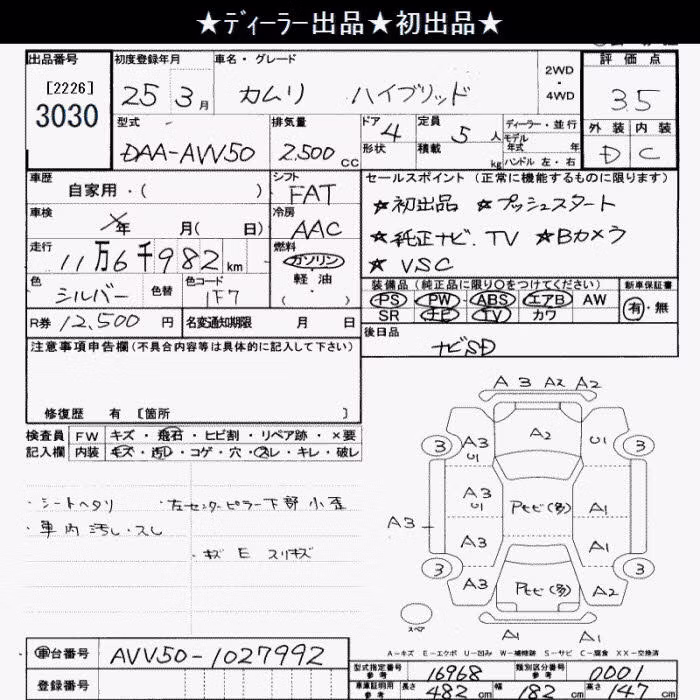 ★ディーラー出品★初出品★
出品番号
[2226]
3030
初度登録年月
25 3月
車名・グレード
カムリ ハイブリッド
2WD
・
4WD
評価点
3.5
外装 内装
D C
型式
DAA-AVV50
排気量
2,500cc
ドア 4
形状
定員 5人
積載 kg
ディーラー・並行
モデル
年式 年
ハンドル 左・右
車歴
自家用・( )
シフト
FAT
車検
年 月( 日)
冷房
AAC
走行
11万6千982km
燃料
ガソリン
軽・油
( )
色
シルバー
色替
色コード
1F7
R券 12,500円
名変通知期限 月 日
セールスポイント(正常に機能するものに限ります)
★初出品 ★プッシュスタート
★純正ナビ.TV ★Bカメラ
★VSC
装備品(純正品に限り○をつけてください)
PS PW ABS エアB AW
SR ナビ TV カワ
新車保証書
有・無
後日品
ナビSD
注意事項申告欄(不具合内容等は具体的に記入して下さい)
修復歴 有 [箇所 ]
検査員
記入欄
FW キズ・飛石・ヒビ割・リペア跡・×要
内装 キズ・汚レ・コゲ・穴・スレ・キレ・破レ
・シートヘタリ ・左センターピラー下部 小歪
・車内汚し・スレ
・キズ E スリキズ
A3 A2 A2
A2
3 3
A3
U1
U1
A3
U1
Pモヒ(多)
A1
A3
A3
A1
3 3
A3
Pモヒ(多)
A2
スペア
A1 A1
A-キズ E-エクボ U-凹み W-補修跡 S-サビ C-腐食 XX-交換済
車台番号
AVV50-1027992
登録番号
型式指定番号
参考
16968
類別区分番号
参考
0001
車庫証明用
参考
長さ 482cm 幅 182cm 高さ 147cm